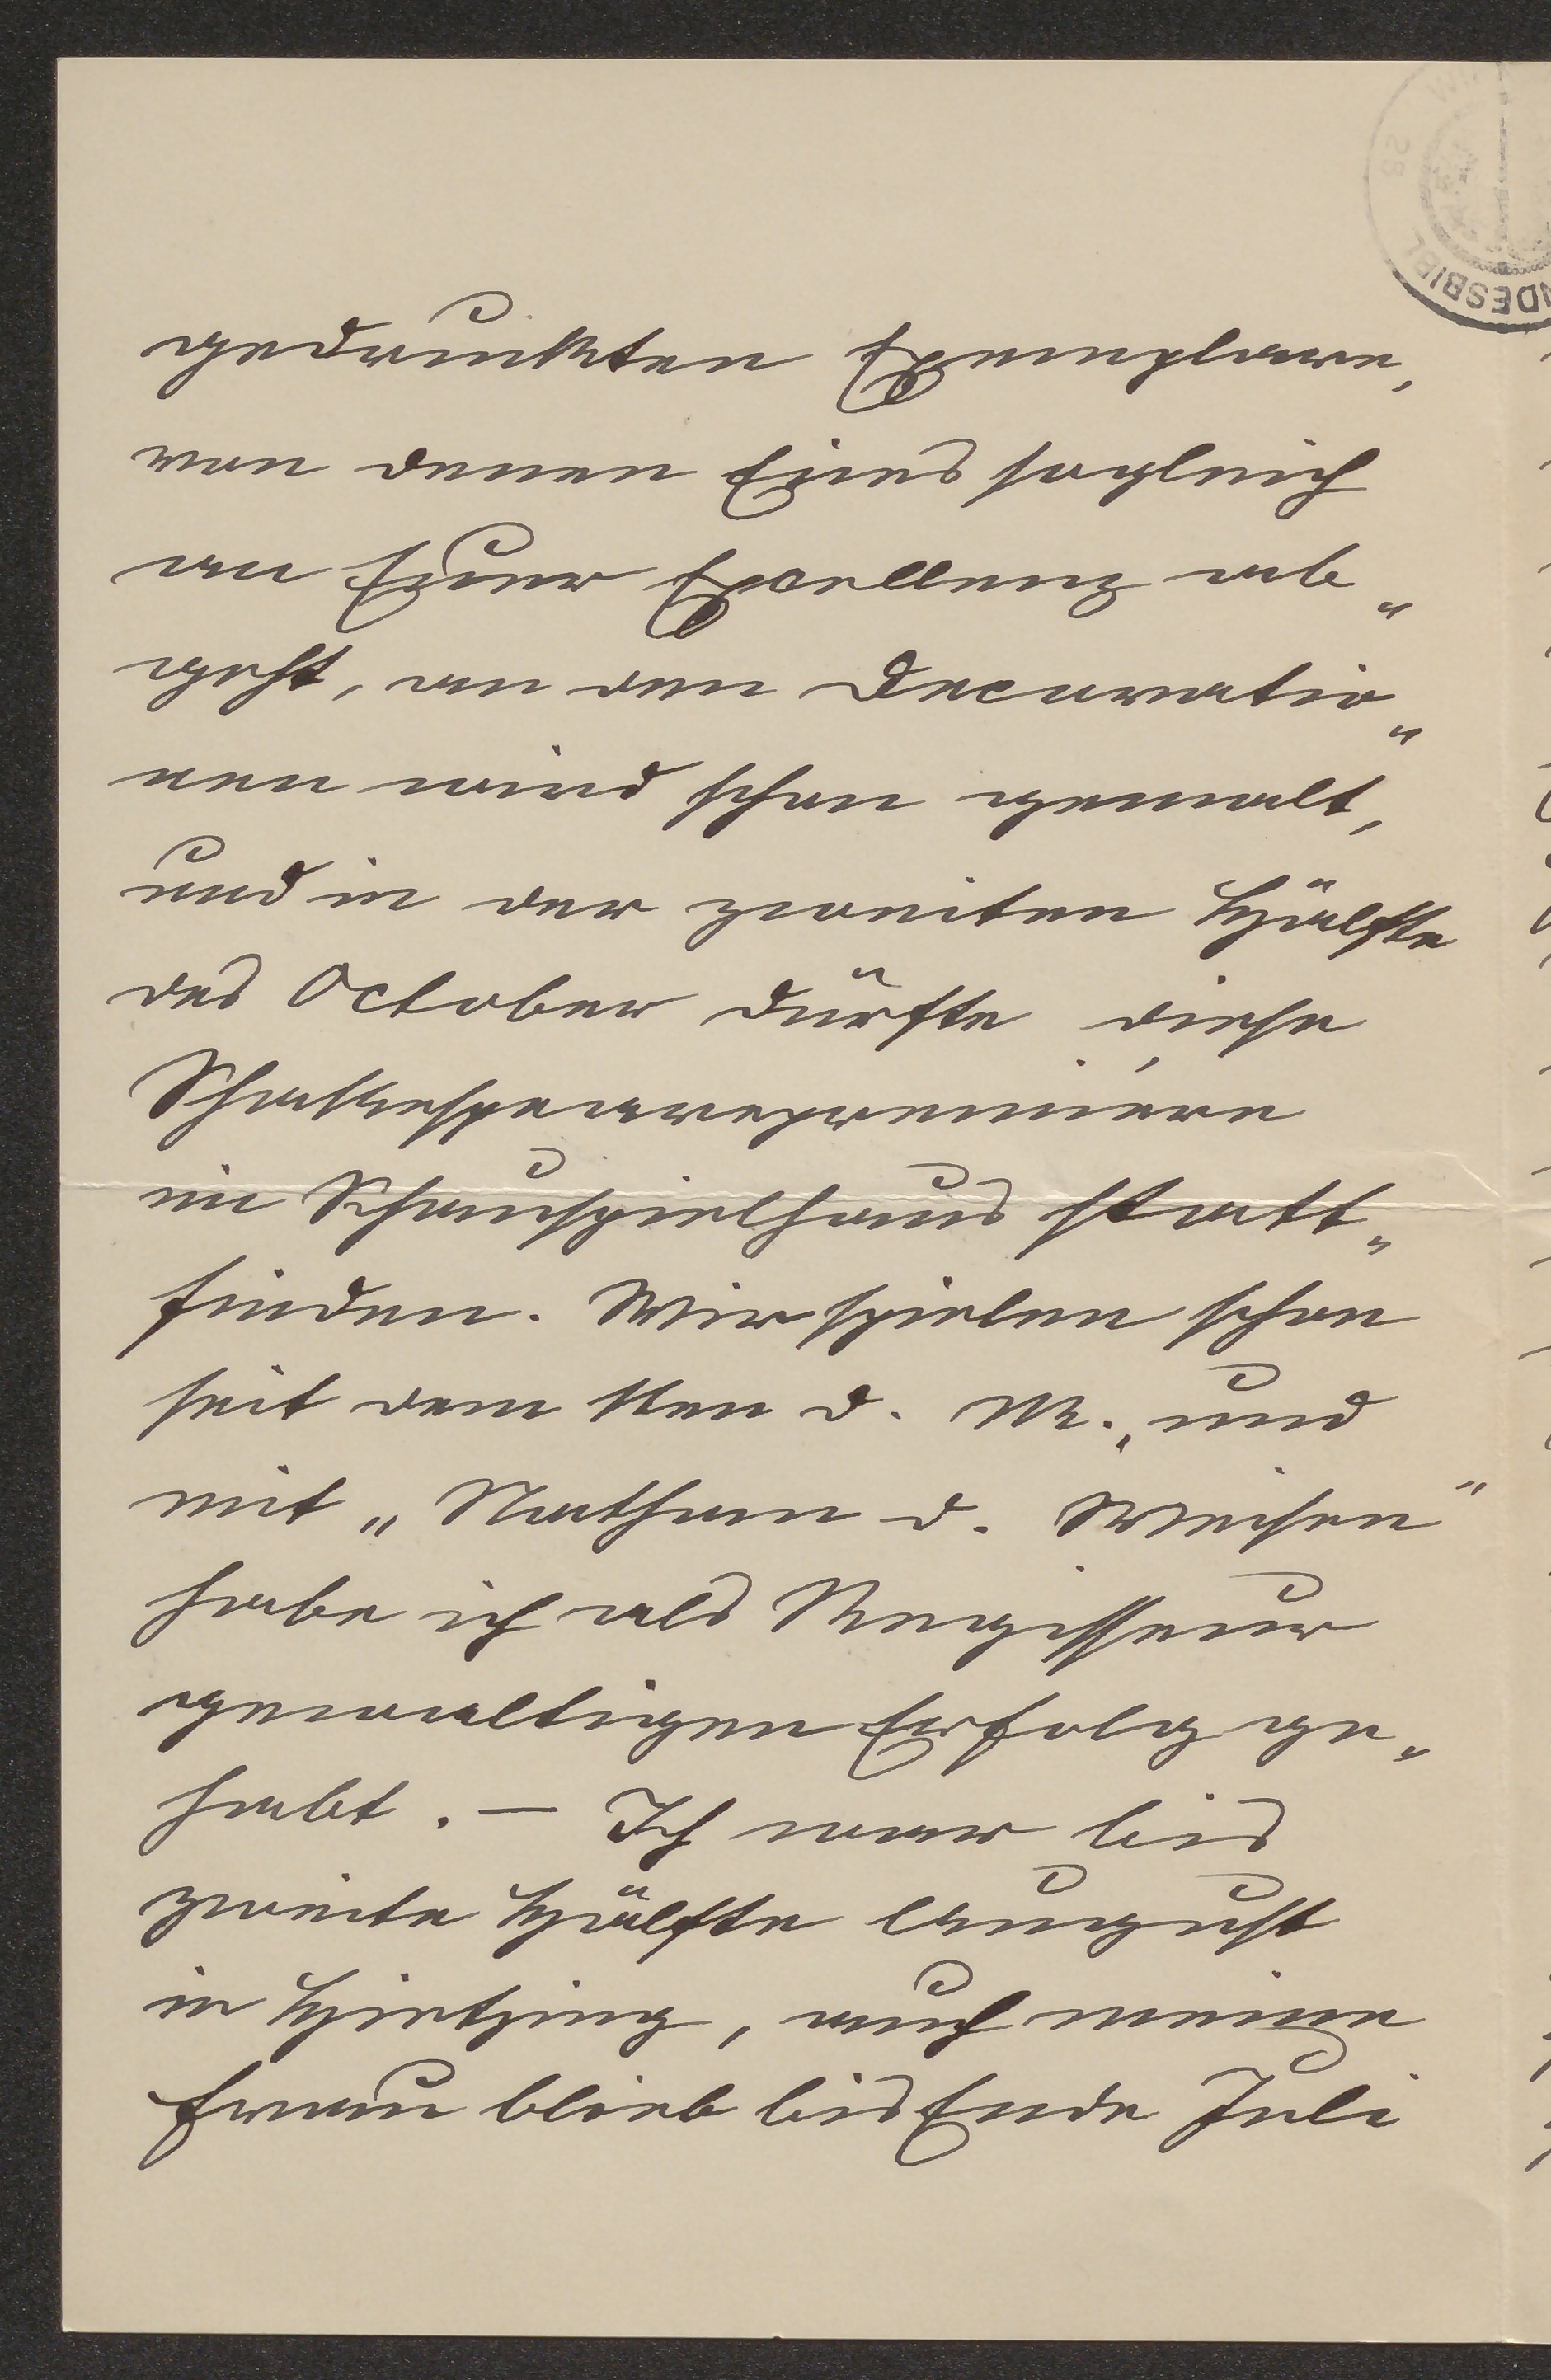 gedruckten Exemplare,
von denen Eines sogleich
an Euer Excellenz ab„
geht, an den Decoratio„
nen wird schon gemalt,
und in der zweiten Hälfte
des October dürfte diese
Shakespearepremière
im Schauspielhaus statt„
finden. Wir spielen schon
seit dem 1ten d. M., und
mit „Nathan d. Weisen"
habe ich als Regisseur
gewaltigen Erfolg ge„
habt. — Ich war bis
zweite Hälfte August
in Hietzing, auch meine
Frau blieb bis Ende Juli